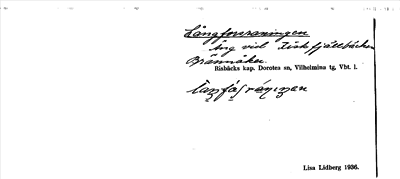 Långforsmyren
Äng vid Fiskfjällbäcken
Brännåker.
Risbäcks kap. Dorotea sn, Vilhelmina tg, Vbt. l.
Lisa Lidberg 1936.